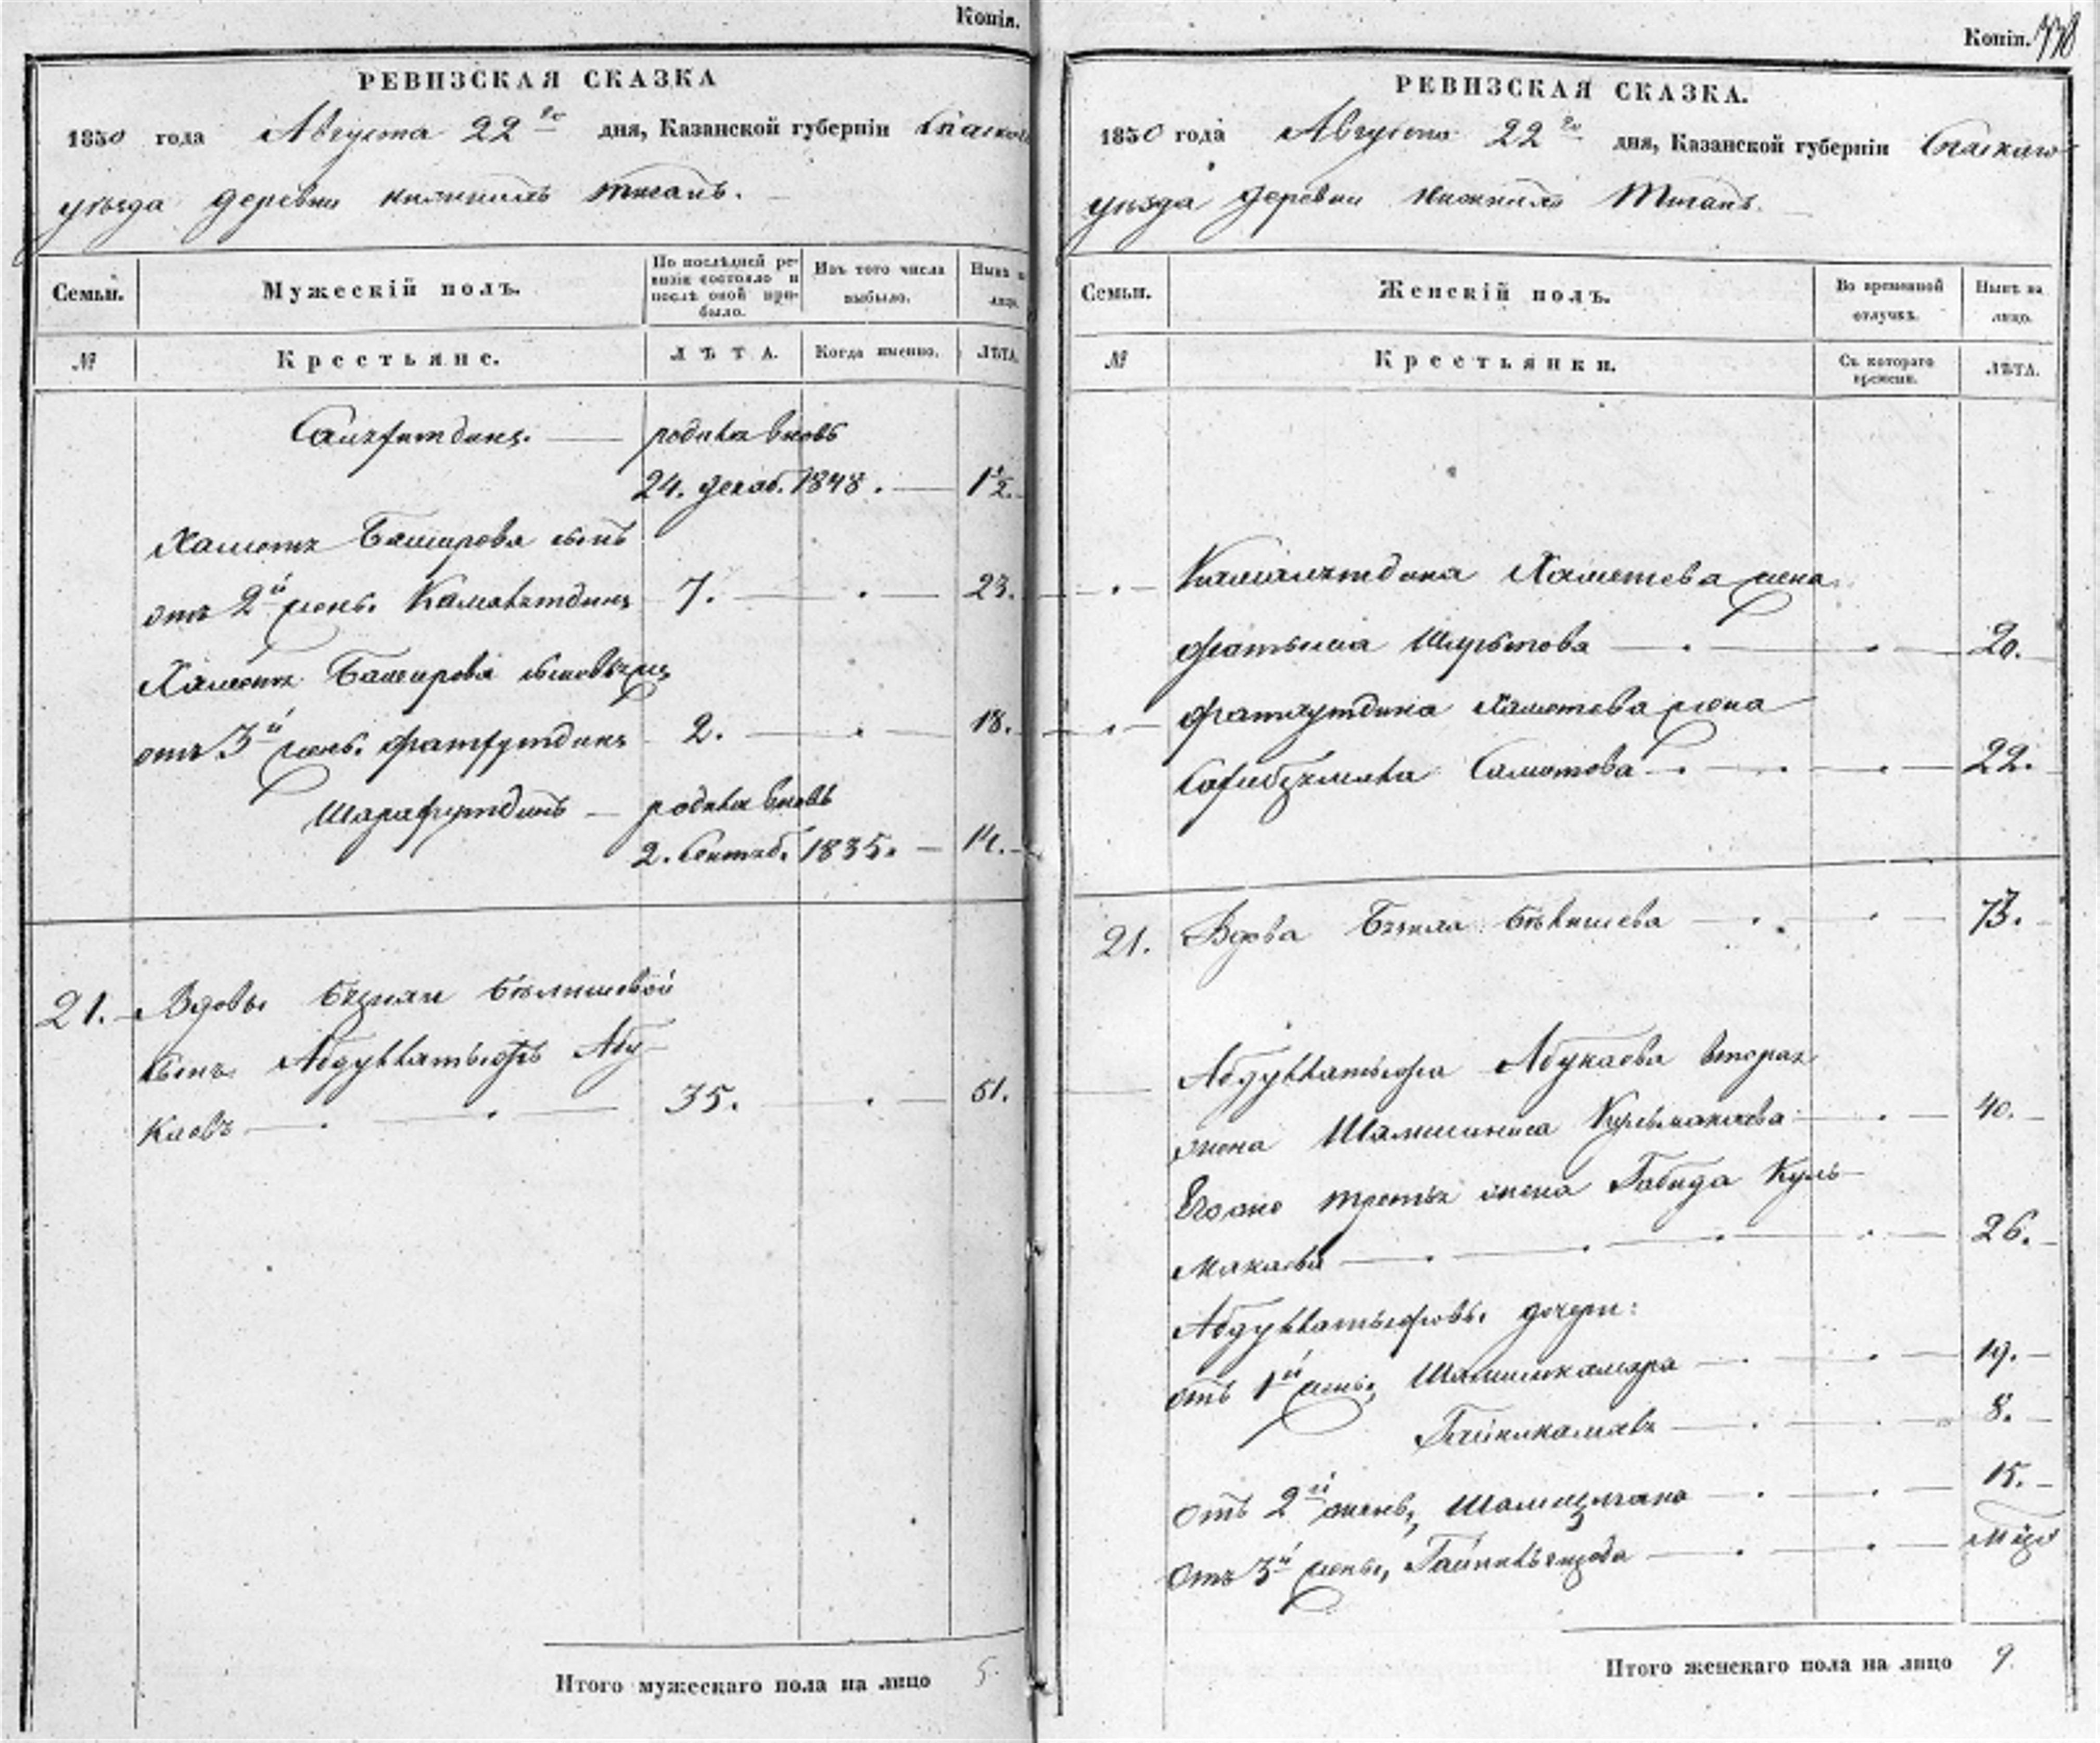 Копія.
РЕВИЗСКАЯ СКАЗКА
1850 года Августа 22го дня, Казанской губерніи Спаскаго
уѣзда деревни нижнихъ тиганъ.
Семьи. Мужескій полъ. По послѣдней ревизіи состояло и послѣ оной прибыло. Изъ того числа выбыло. Нынѣ на лицо.
№ Крестьяне. ЛѢТА. Когда именно. ЛѢТА.
родился вновь
24. декаб. 1848. 1½.
Хаметъ Баширова сынъ
отъ 2й жены. Камалетдинъ 7. 23.
Хаметъ Баширова сыновья
отъ 3й жены. Фатхутдинъ 2. 18.
Шарафутдинъ родился вновь
2. Сентяб. 1835. 14.
21. Вдовы Бекишевой
сынъ Абдуллатыфъ Абу-
каевъ 35. 51.
Итого мужескаго пола на лицо 5.
Копія.
РЕВИЗСКАЯ СКАЗКА.
1850 года Августа 22го дня, Казанской губерніи Спаскаго
уѣзда деревни нижнихъ Тиганъ.
Семьи. Женскій полъ. Во временной отлучкѣ. Нынѣ на лицо.
№ Крестьянки. Съ котораго времени. ЛѢТА.
Камалетдина Хаметева жена
20.
Фатхутдина Хаметева жена
Саметова 22.
21. Вдова Бекишева 73.
Абдуллатыфа Абукаева вторая
жена Кульмакаева 40.
Его же третья жена Габида Куль-
макаева 26.
Абдуллатыфовы дочери:
отъ 1й жены, Шамсикамара 19.
8.
отъ 2й жены, 15.
отъ 3й жены,
Итого женскаго пола на лицо 9.